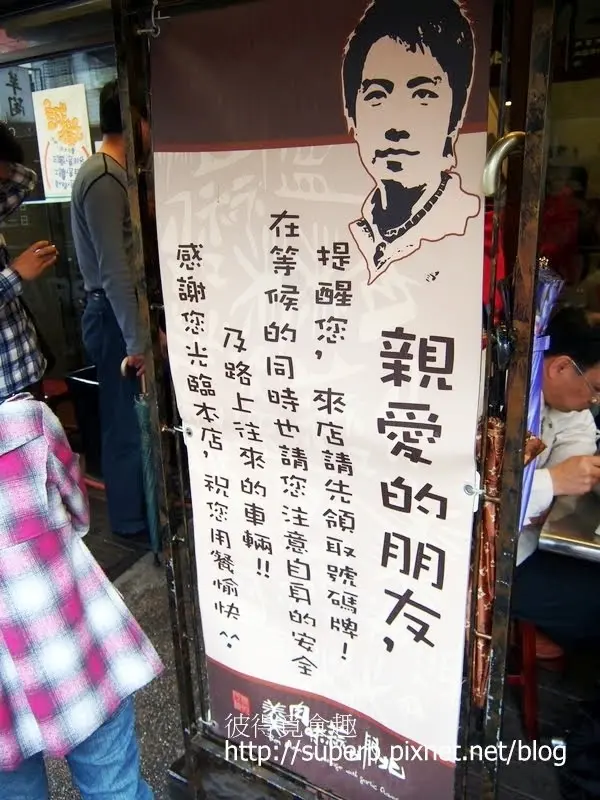 親愛的朋友，
提醒您，來店請先領取號碼牌！
在等候的同時也請您注意自身的安全
及路上往來的車輛!!
感謝您光臨本店，祝您用餐愉快^^
彼得覓食趣
http://superp.pixnet.net/blog